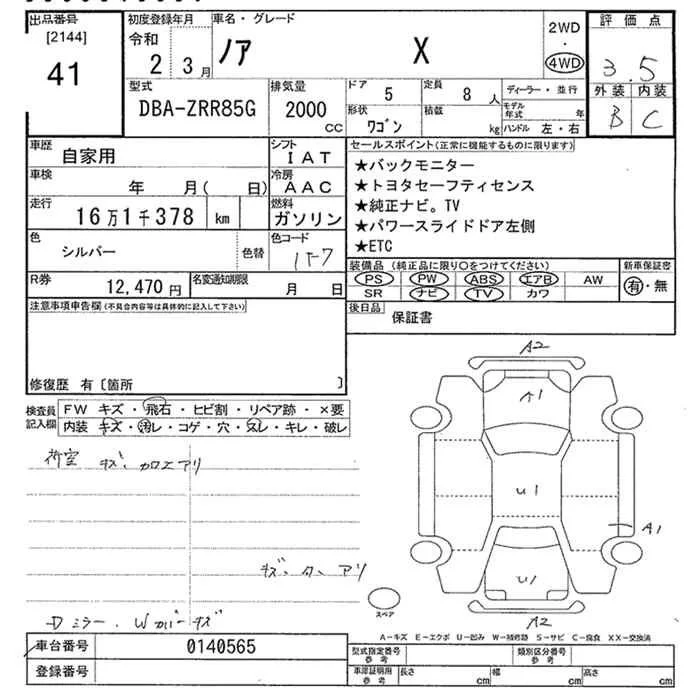 出品番号 初度登録年月 車名・グレード 評価点
[2144] 令和 2WD
41 2 3月 ノア X ・ 4WD 3.5
型式 排気量 ドア 5 定員 8 人 ディーラー・並行 外装 内装
DBA-ZRR85G 2000 CC 形状 ワゴン 積載 kg モデル年式 年 B C
ハンドル 左・右
車歴 自家用 シフト IAT セールスポイント(正常に機能するものに限ります)
車検 年 月( 日) 冷房 AAC ★バックモニター
★トヨタセーフティセンス
走行 16万1千378 km 燃料 ガソリン ★純正ナビ。TV
★パワースライドドア左側
色 シルバー 色替 色コード 1F7 ★ETC
R券 12,470円 名変通知期限 月 日 装備品(純正品に限り○をつけてください) 新車保証書
PS PW ABS エアB AW 有・無
SR ナビ TV カワ
注意事項申告欄(不具合内容等は具体的に記入して下さい) 後日品 保証書
修復歴 有〔箇所 〕
検査員記入欄 FW キズ・飛石・ヒビ割・リペア跡・×要
内装・キズ・汚レ・コゲ・穴・スレ・キレ・破レ
荷室 キズ カロエアリ
キズ、タ、アリ
Dミラー、Wカバーキズ
A2
A1
U1
A1
U1
A2
スペア
A-キズ E-エクボ U-凹み W-補修跡 S-サビ C-腐食 XX-交換済
車台番号 0140565 型式指定番号 参考 類別区分番号 参考
登録番号 車庫証明用 参考 長さ cm 幅 cm 高さ cm